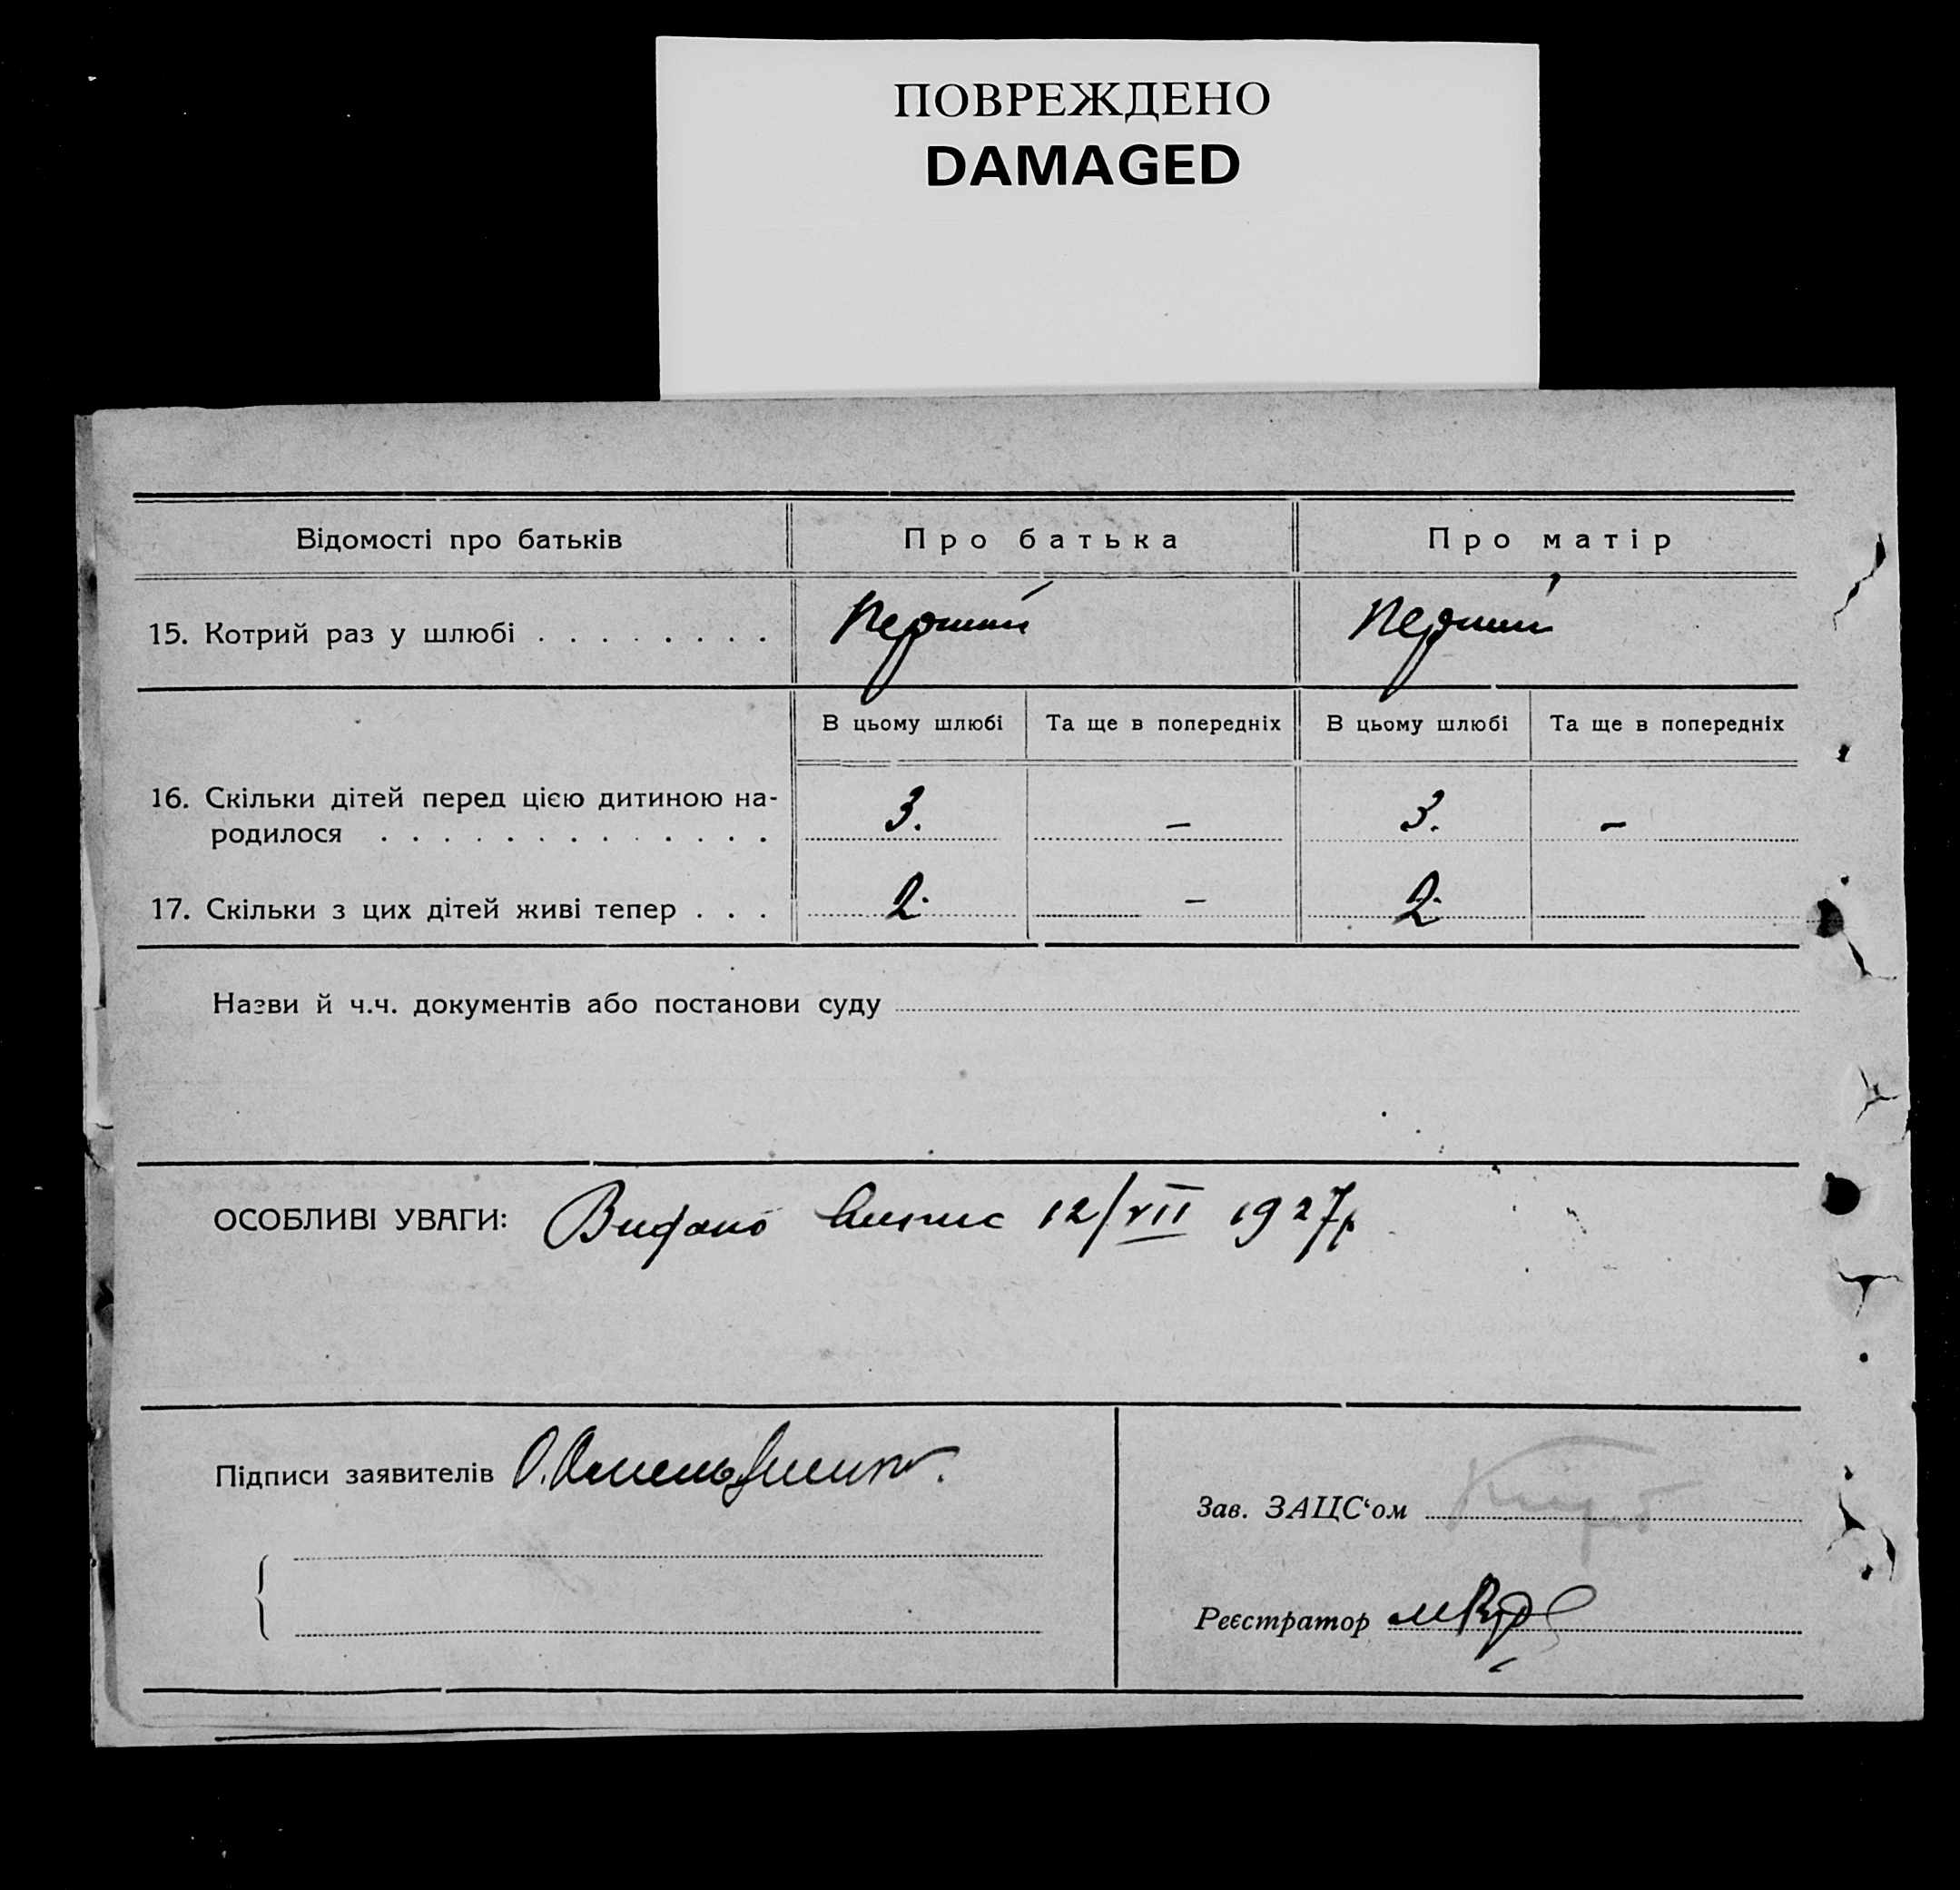 ПОВРЕЖДЕНО
DAMAGED
Відомості про батьків
Про батька
Про матір
15. Котрий раз у шлюбі . . . . . . . .
Перший
Перший
В цьому шлюбі
Та ще в попередніх
В цьому шлюбі
Та ще в попередніх
16. Скільки дітей перед цією дитиною на-
родилося . . . . . . . . . . . . .
3.
–
3.
–
17. Скільки з цих дітей живі тепер . . .
2.
–
2.
Назви й ч.ч. документів або постанови суду
ОСОБЛИВІ УВАГИ: Видано випис 12/VII 1927р
Підписи заявителів
Зав. ЗАЦС‘ом
Реєстратор